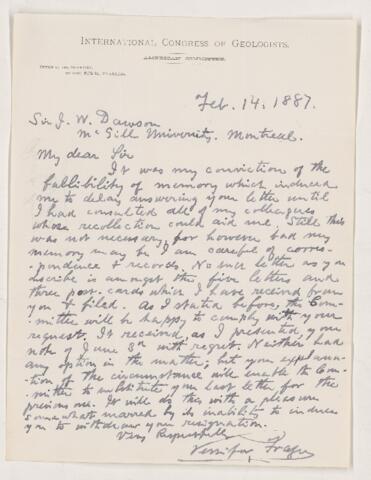 INTERNATIONAL CONGRESS OF GEOLOGISTS.
AMERICAN COMMITTEE.
Feb. 14, 1887.
Sir J. W. Dawson
McGill University, Montreal.
My dear Sir
It was my conviction of the
fallibility of memory which induced
me to delay answering your letter until
I had consulted all of my colleagues
whose recollection could aid me. Still this
was not necessary, for however bad my
memory may be I am careful of corres-
pondence & records. No such letter as you
describe is amongst the five letters and
three post-cards which I have received from
you & filed. As I stated before, the Com-
mittee will be happy to comply with your
request. It received, as I presented, your
note of June 3rd with regret. Neither had
any option in the matter; but your explana-
tion of the circumstance will enable the Com-
mittee to substitute your last letter for the
previous one. It will do this with a pleasure
somewhat marred by its inability to induce
you to withdraw your resignation.
Very Respectfully
Persifor Frazer